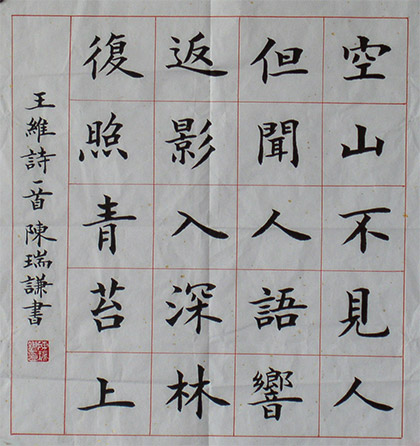 空山不見人
但聞人語響
返影入深林
復照青苔上
王維詩一首陳瑞謙書